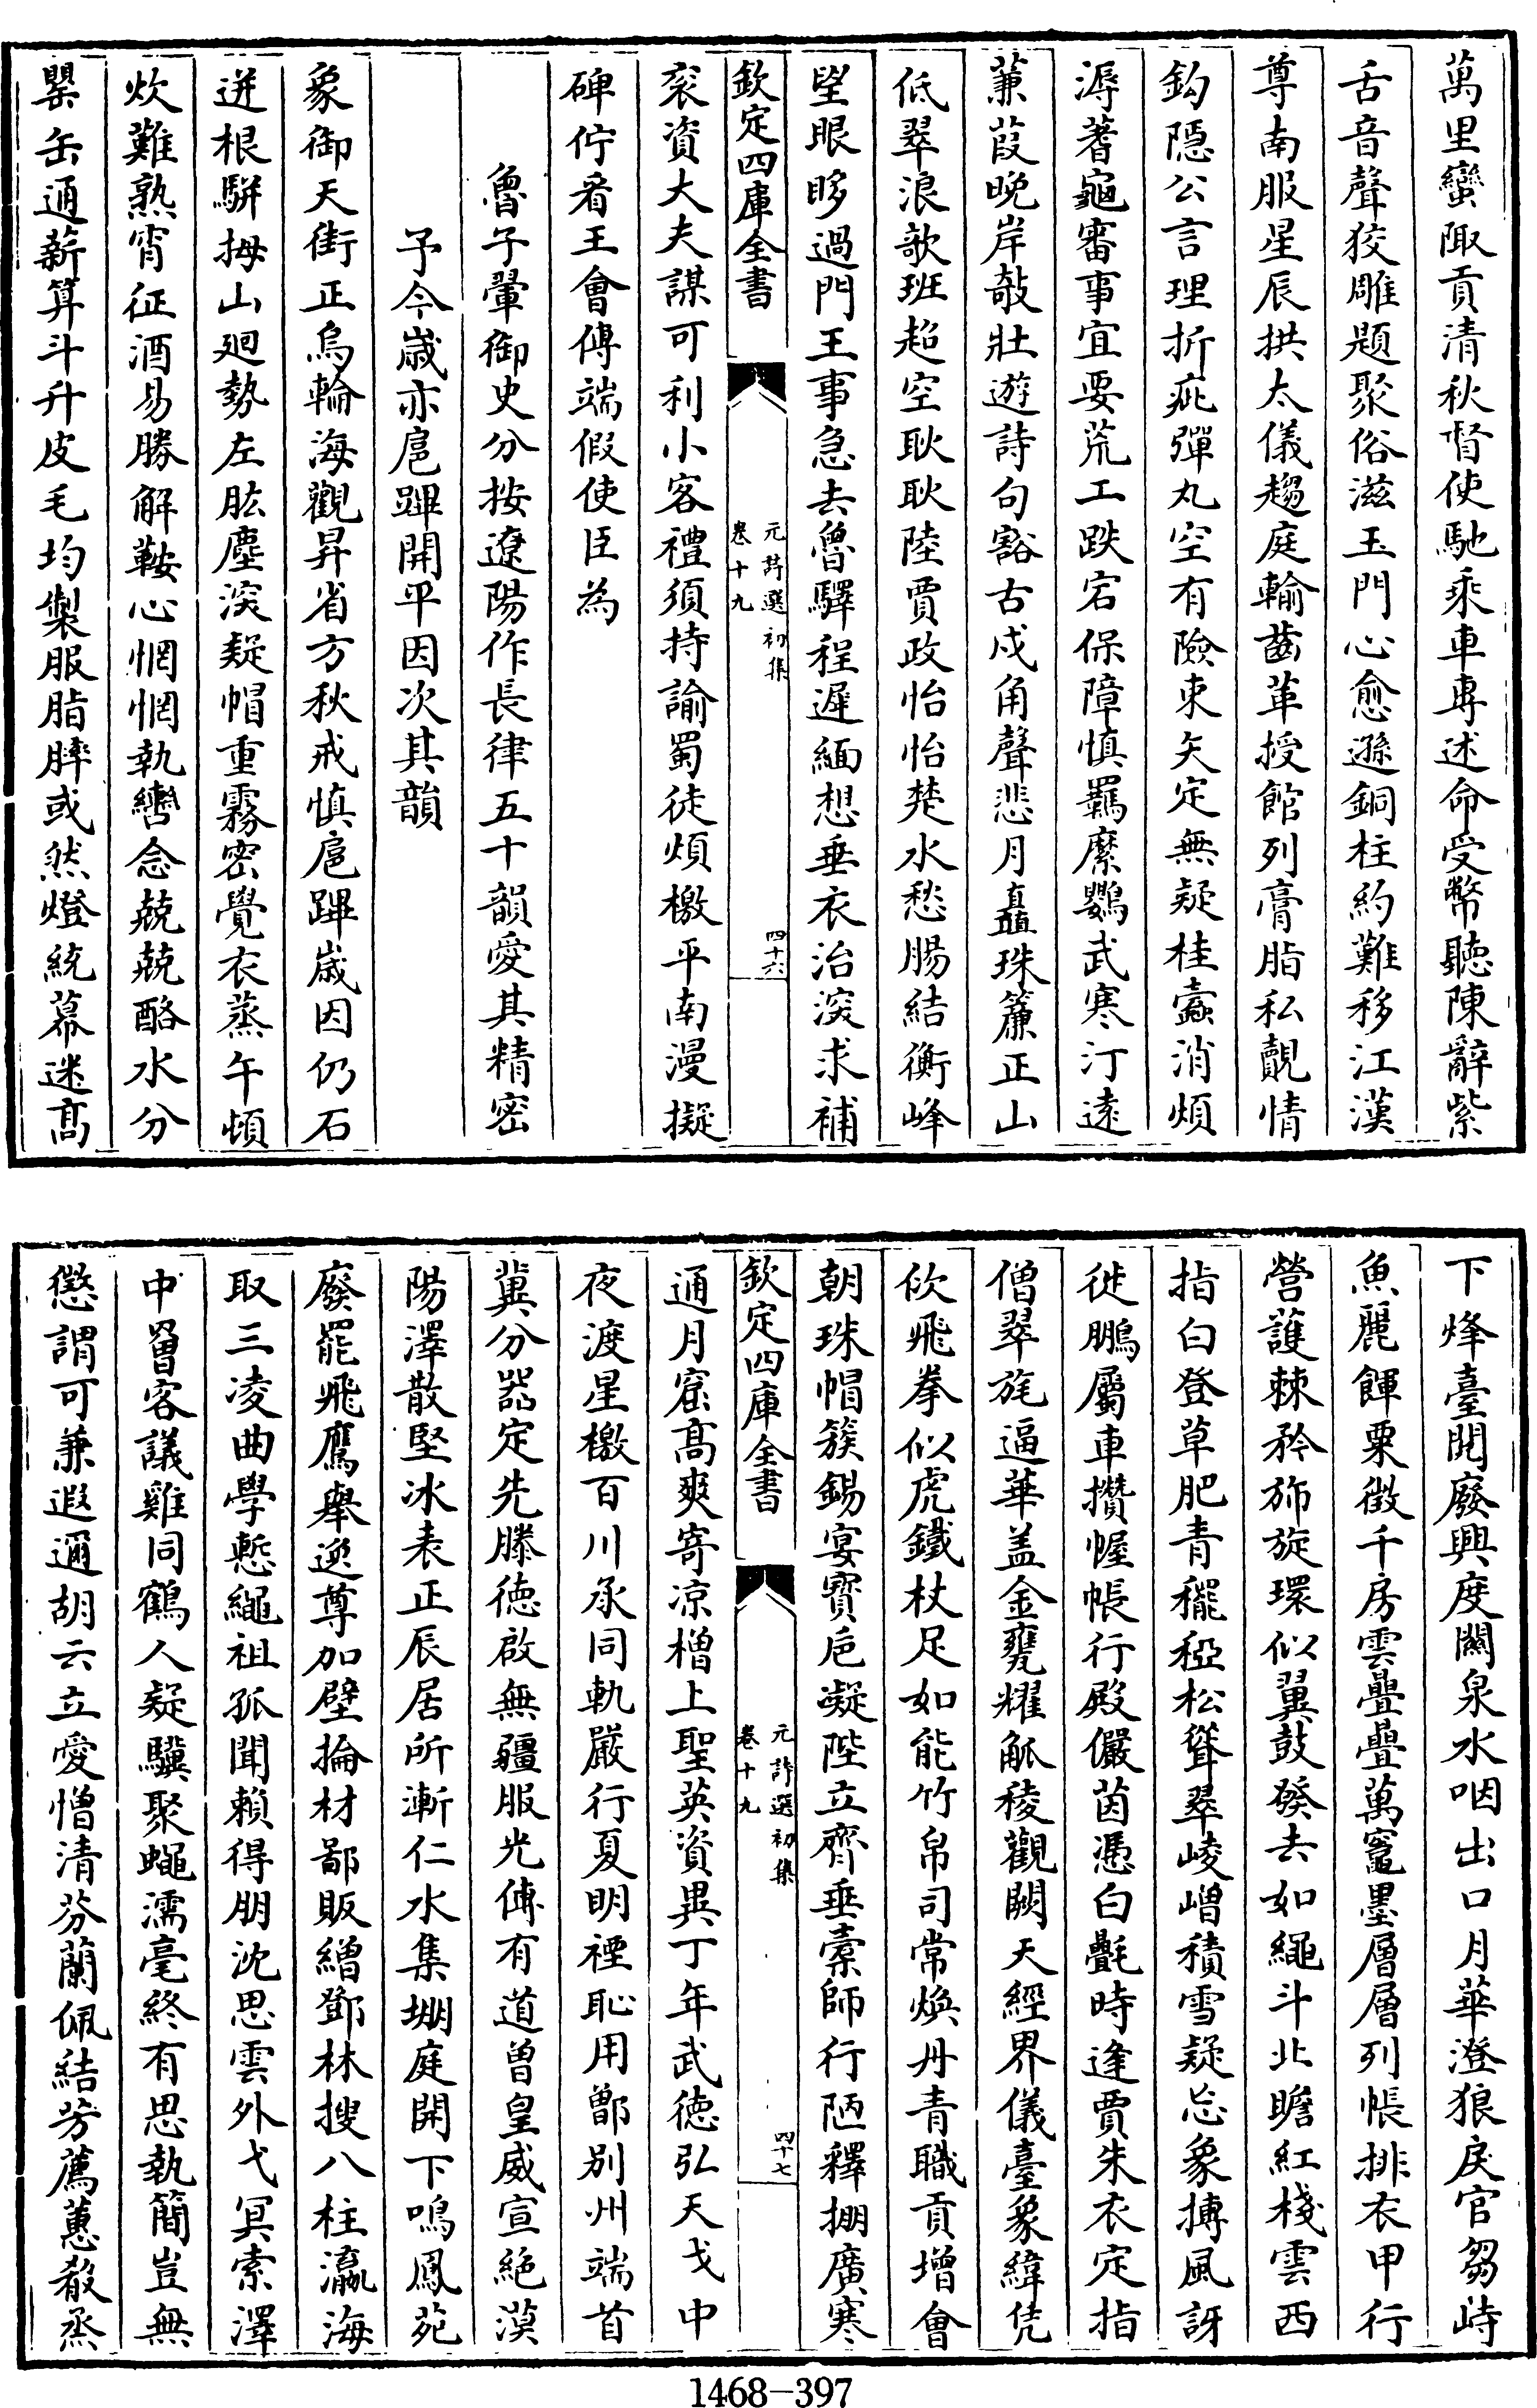 萬里蠻陬貢清秋督使馳乘車專述命受幣聽陳辭紫
舌音聲狡雕題聚俗滋玉門心愈遜銅柱約難移江漢
尊南服星辰拱太儀趨庭輸齒革授館列膏脂私覿情
鈎隠公言理折疵彈丸空有險束矢定無疑桂蠧消煩
溽蓍龜審事宜要荒工跌宕保障慎羈縻鸚武寒汀遠
蒹葭晚岸敧壯遊詩句豁古戍角聲悲月矗珠簾正山
低翠浪欹班超空耿耿陸賈政怡怡楚水愁腸結衡峰
望眼眵過門王事急去魯驛程遲緬想垂衣治深求補
欽定四庫全書
元詩選初集
卷十九
四十六
衮資大夫謀可利小客禮須持諭蜀徒煩檄平南漫擬
碑佇看王會傳端假使臣為
魯子翬御史分按遼陽作長律五十韻愛其精密
予今歲亦扈蹕開平因次其韻
象御天街正烏輪海觀昇省方秋戒慎扈蹕歲因仍石
迸根駢拇山廻勢左肱塵深疑帽重霧密覺衣蒸午頓
炊難熟宵征酒易勝解鞍心惘惘執轡念兢兢酪水分
罌缶通薪算斗升皮毛均製服脂膟或然燈統幕迷髙
下烽臺閱廢興度闗泉水咽出口月華澄狼戾官芻峙
魚麗餫粟徵千房雲疊疊萬竈墨層層列帳排衣甲行
營護棘矜斾旋環似翼鼓發去如繩斗北瞻紅棧雲西
指白登草肥青䆉稏松聳翠崚嶒積雪疑忘象摶風訝
徙鵬屬車攢幄帳行殿儼茵憑白㲲時逢賈朱衣定指
僧翠旄逼華盖金甕耀觚稜觀闕天經界儀臺象緯凭
佽飛拳似虎鐵杖足如能竹帛司常煥丹青職貢增會
朝珠帽簇錫宴寳巵凝陛立齊垂橐師行陋釋掤廣寒
欽定四庫全書
元詩選初集
卷十九
四十七
通月窟高爽寄凉橧上聖英資異丁年武徳弘天戈中
夜渡星檄百川承同軌嚴行夏明禋恥用鄫别州端首
冀分器定先滕徳啟無疆服光傳有道曽皇威宣絶漠
陽澤散堅冰表正辰居所漸仁水集堋庭開下鳴鳳苑
廢罷飛鷹舉逸尊加璧掄材鄙販繒鄧林搜八柱瀛海
取三凌曲學慙繩祖孤聞賴得朋沈思雲外弋冥索澤
中罾客議雞同鶴人疑驥聚蠅濡毫終有思執簡豈無
懲謂可兼遐邇胡云立愛憎清芬蘭佩結芳薦蕙殽烝
1468-397